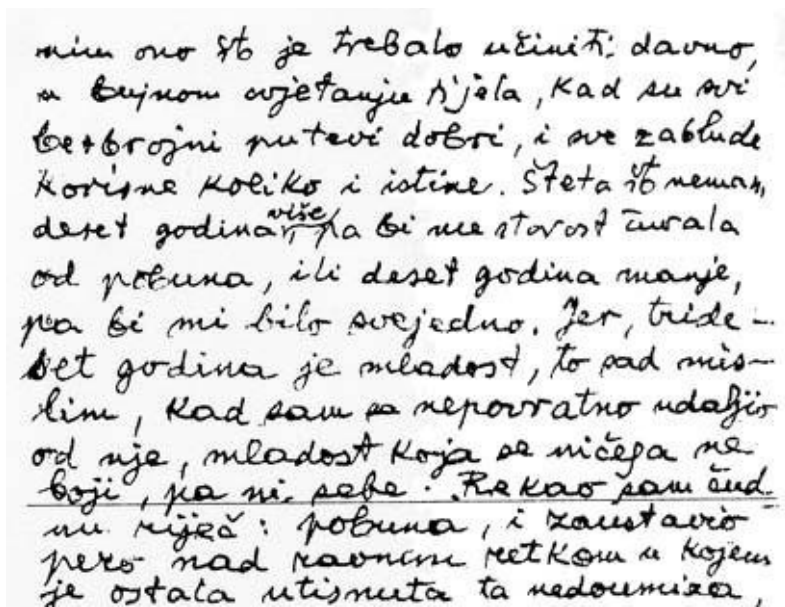 nim ono št je trebalo učiniti davno,
u bujnom cvjetanju tijela, kad su svi
bezbrojni putevi dobri, i sve zablude
korisne koliko i istine. Šteta št nemam
deset godina više, pa bi me starost čuvala
od pobuna, ili deset godina manje,
pa bi mi bilo svejedno. Jer, tride-
set godina je mladost, to sad mis-
lim, kad sam se nepovratno udaljio
od nje, mladost koja se ničega ne
boji, pa ni sebe. Rekao sam čud-
nu riječ: pobuna, i zaustavio
pero nad ravnim retkom u kojem
je ostala utisnuta ta nedoumica,